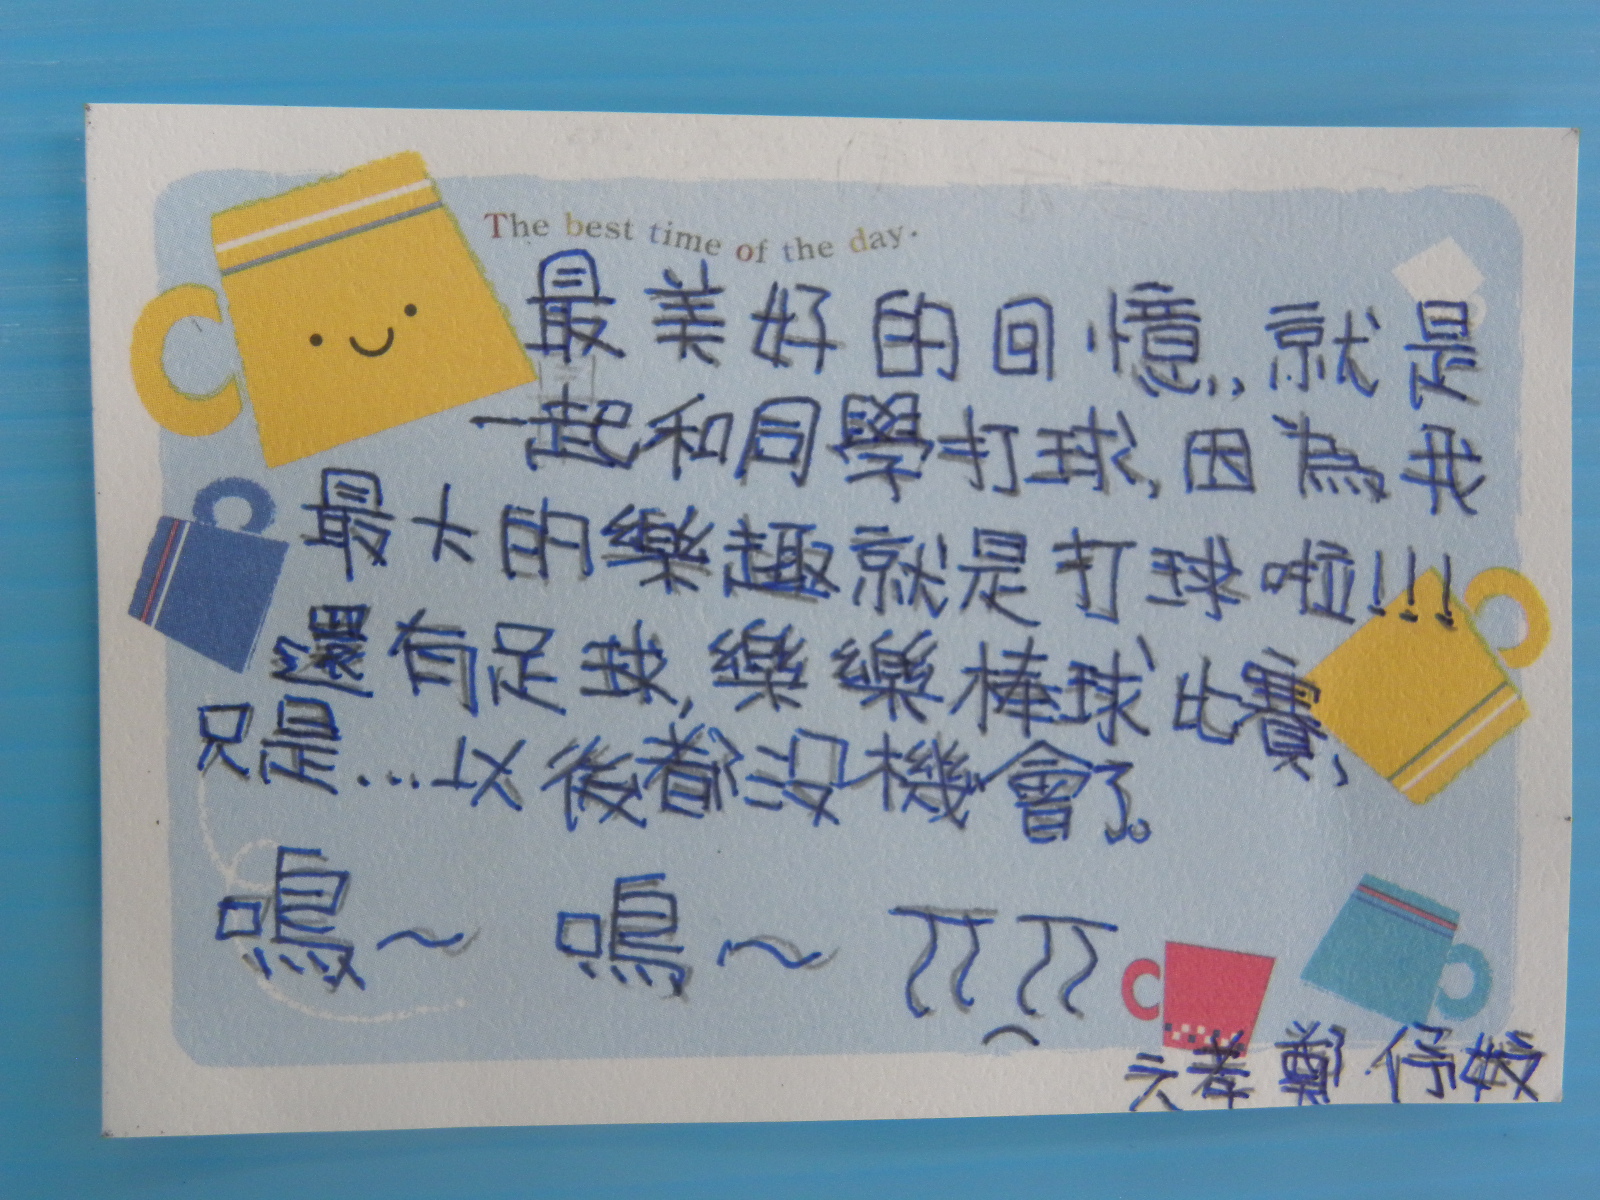 The best time of the day.
最美好的回憶,就是
一起和同學打球,因為我
最大的樂趣就是打球啦!!!
還有足球,樂樂棒球比賽,
只是...以後都沒機會了。
嗚~ 嗚~ ㄒㄒ
六孝 鄭伃